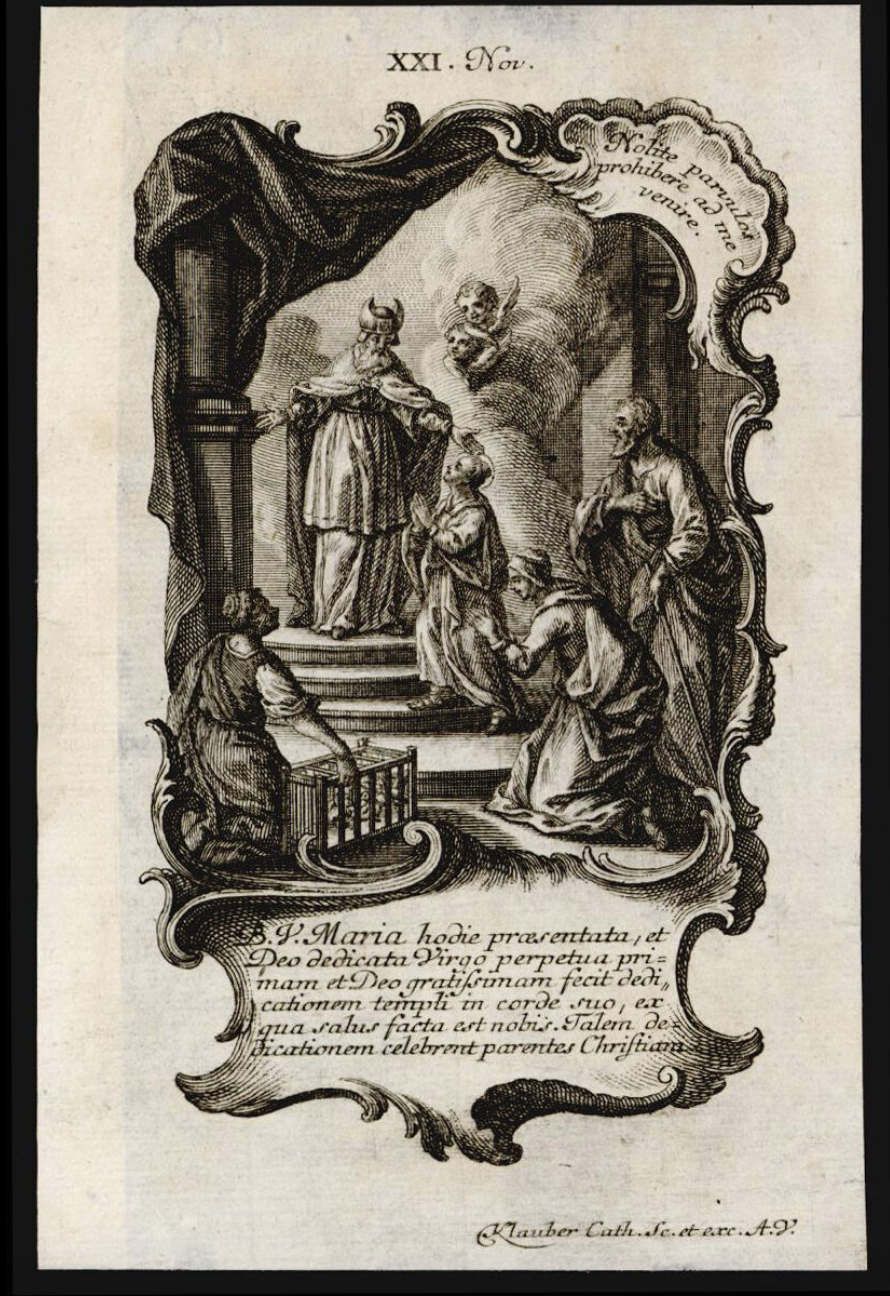 XXI. Nov.
Nolite parvulos
prohibere ad me
venire.
B.V. Maria hodie præsentata, et
Deo dedicata Virgo perpetua pri=
mam et Deo gratiſsimam fecit dedi„
cationem templi in corde suo, ex
qua salus facta est nobis. Talem de=
dicationem celebrent parentes Chriſtiani
Klauber Cath. Sc. et exc. A.V.